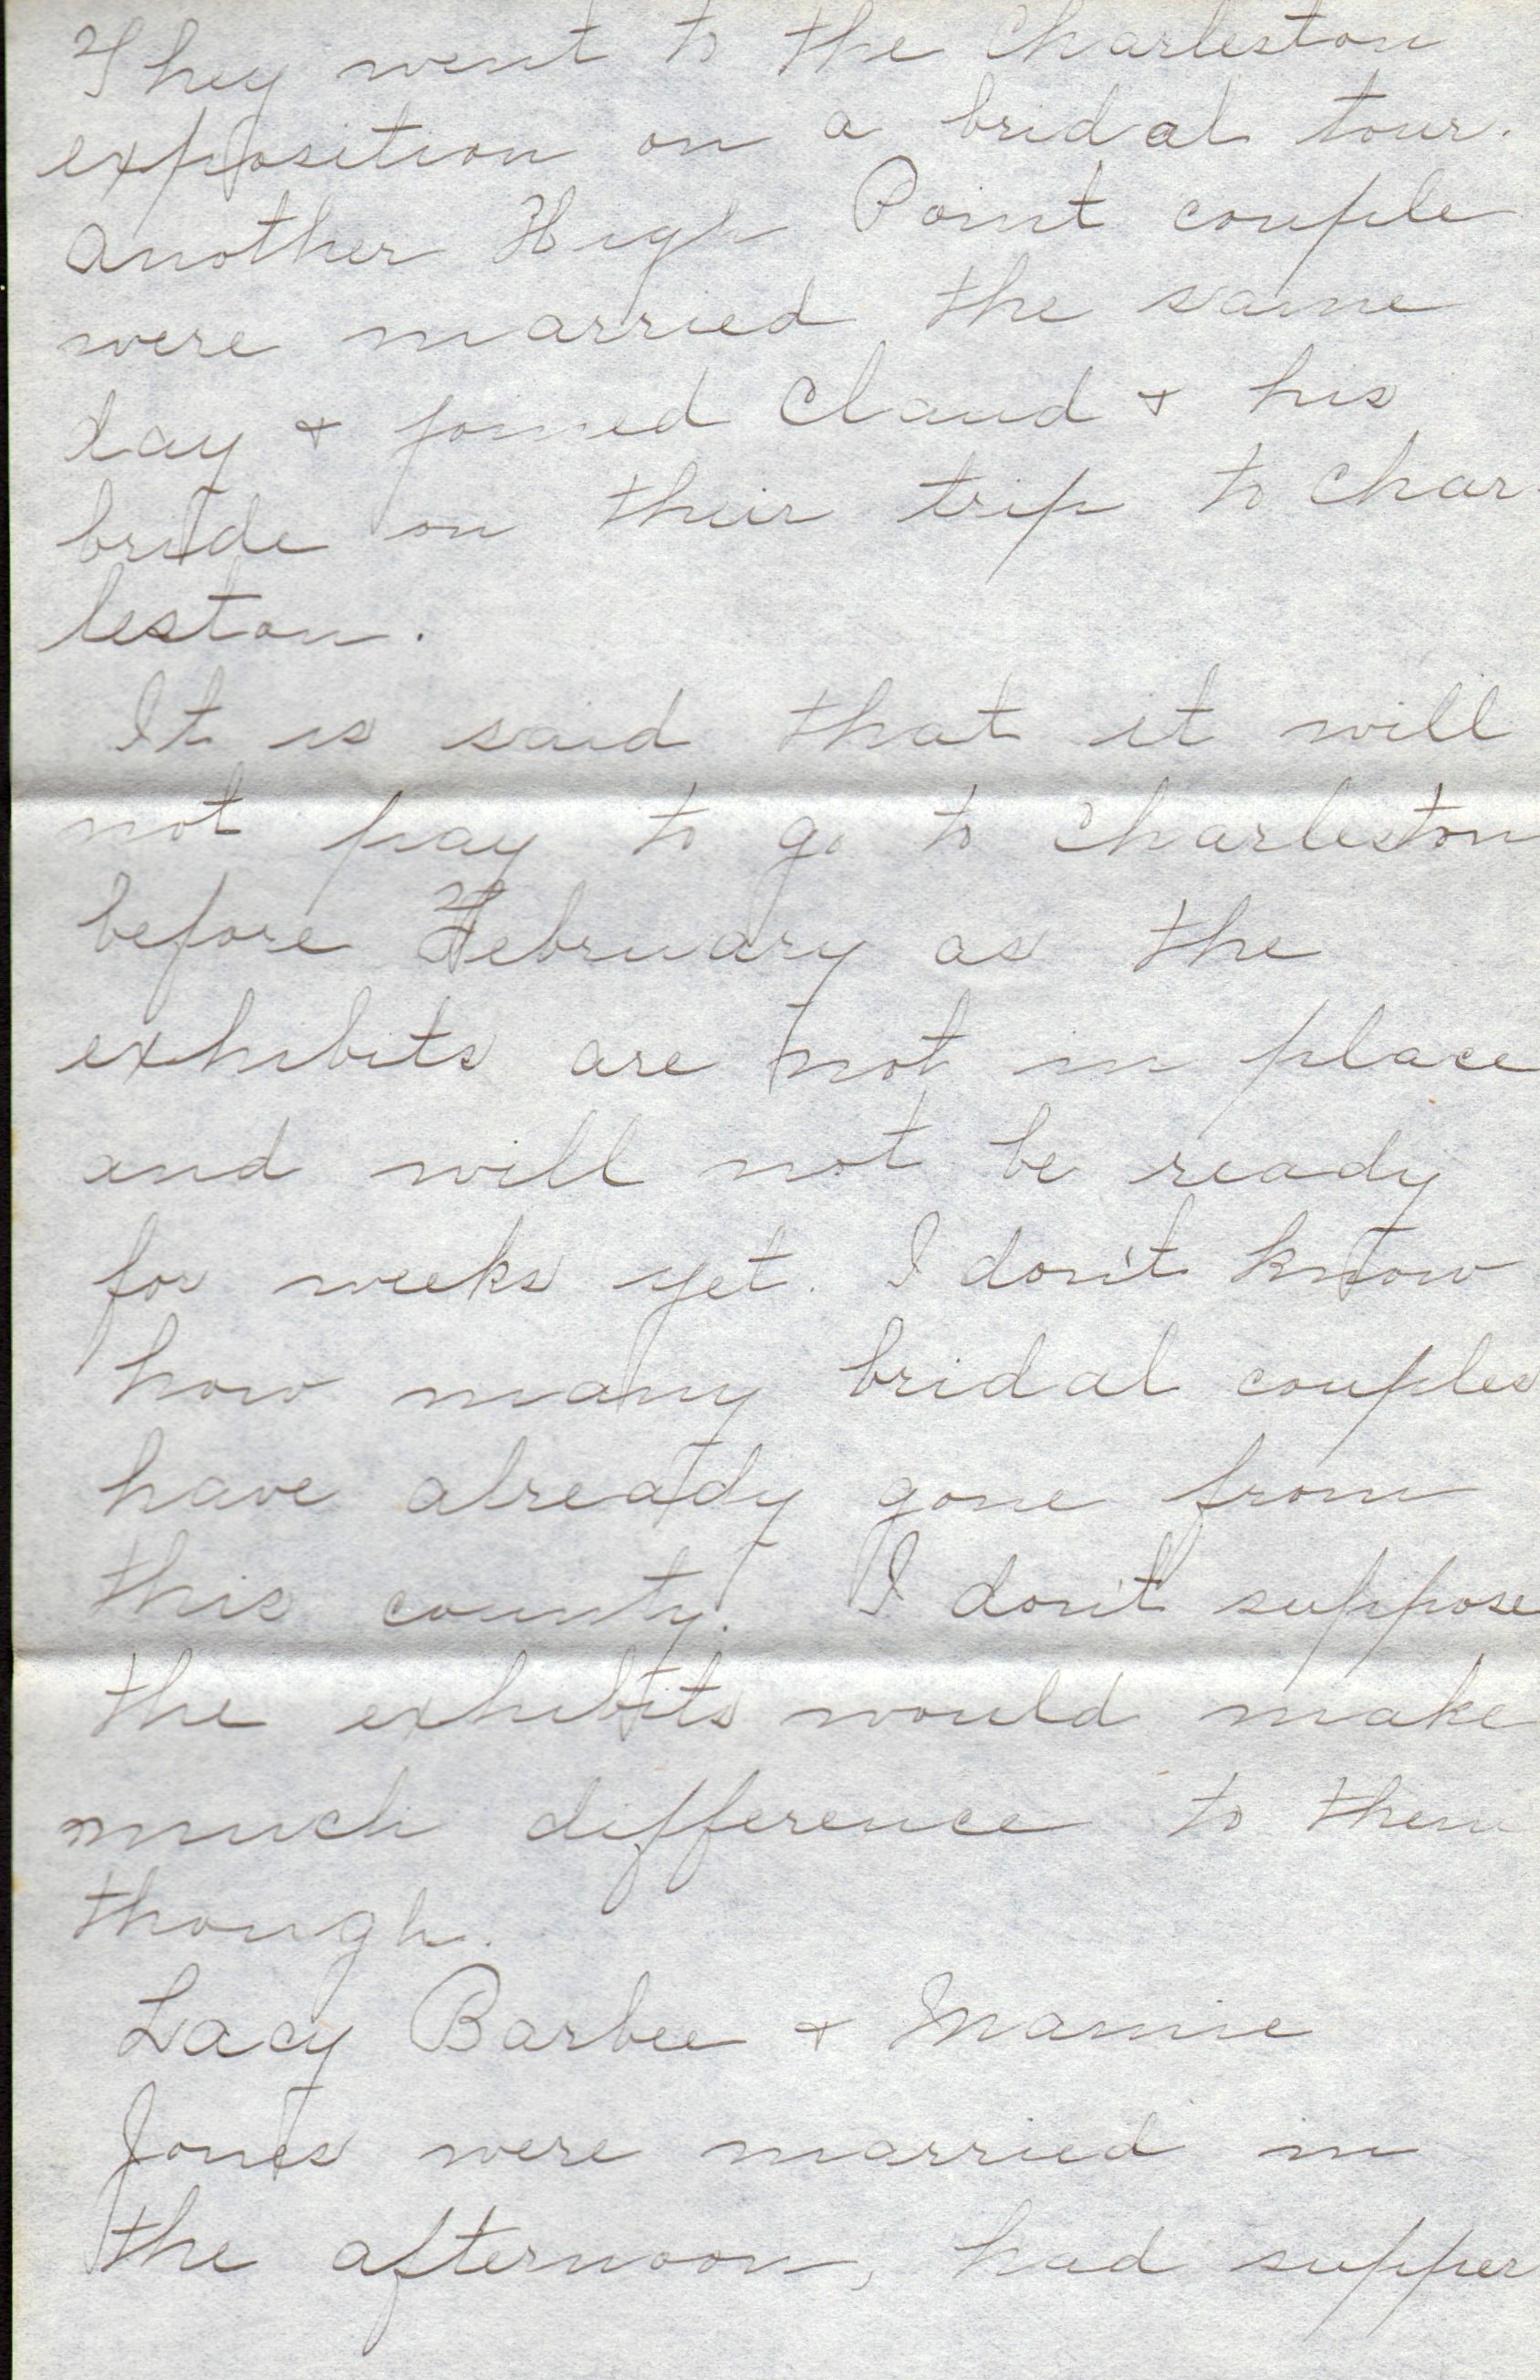 They went to the Charleston
exposition on a bridal tour.
Another High Point couple
were married the same
day + joined Claud + his
bride on their trip to Char
leston.
It is said that it will
not pay to go to Charleston
before February as the
exhibits are not in place
and will not be ready
for weeks yet. I don't know
how many bridal couples
have already gone from
this county. I don't suppose
the exhibits would make
much difference to them
though.
Lacy Barbee + Mamie
Jones were married in
the afternoon, had supper